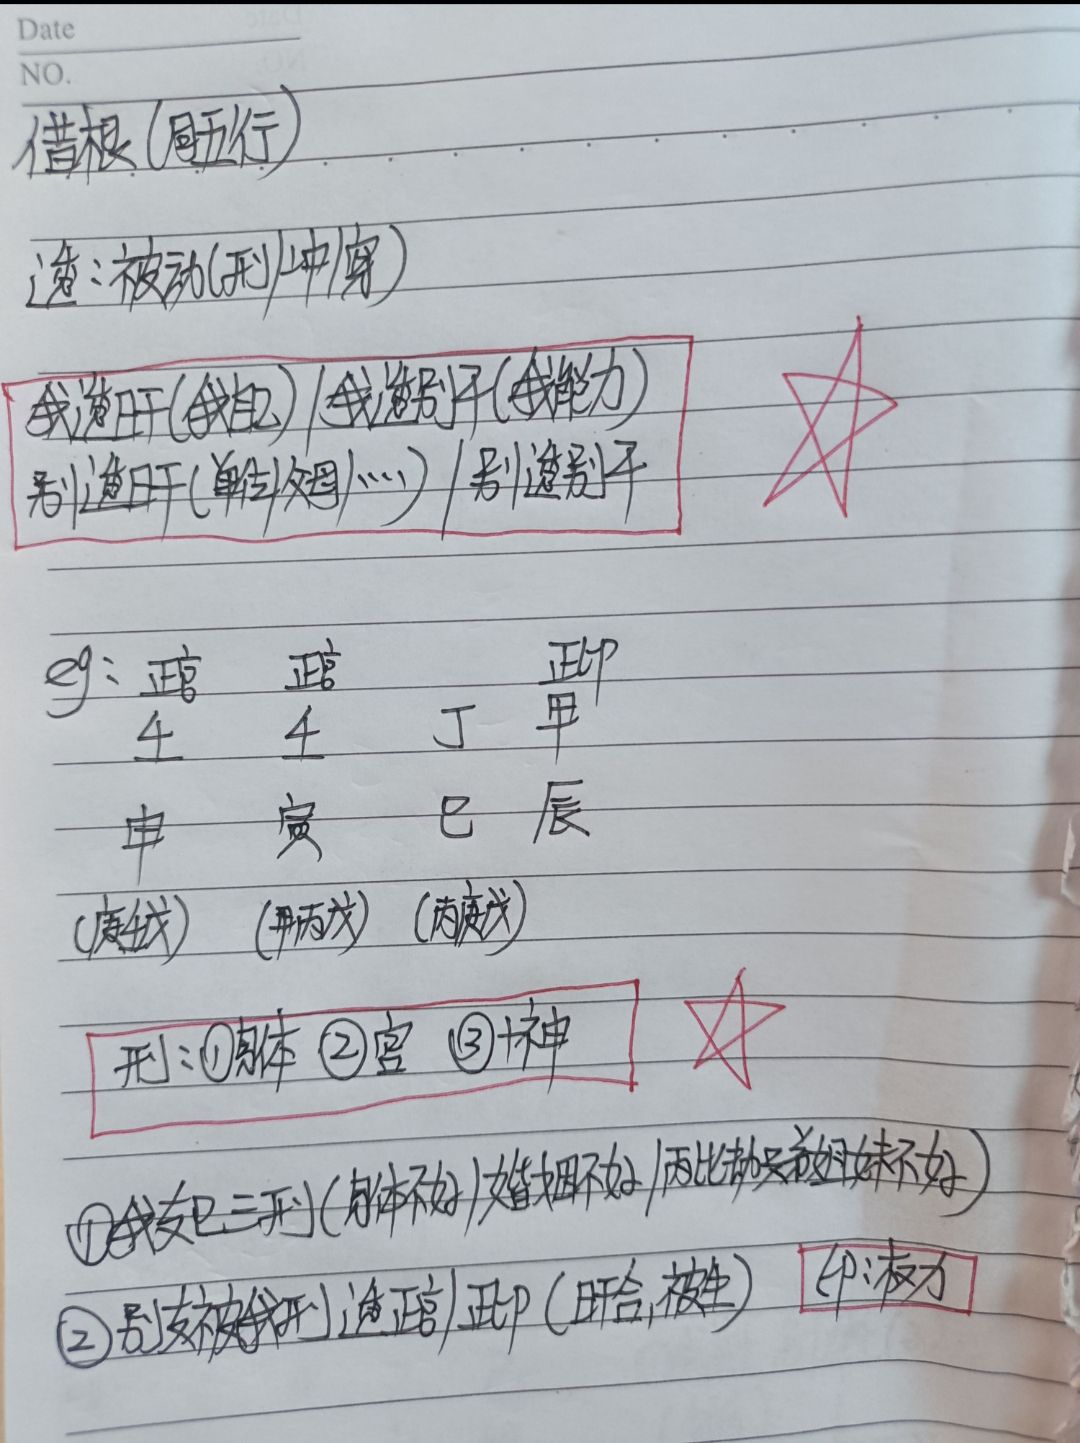 Date
NO.
借根(同五行)
造:被动(刑/冲/穿)
我造日干(我自己)/我造别干(我能力)
别造日干(单位/父母/……)/别造别干
eg: 正官 正官 正印
壬 壬 丁 甲
申 寅 巳 辰
(庚壬戊) (甲丙戊) (丙庚戊)
刑:①身体 ②宫 ③十神
①我支巳三刑(身体不好/婚姻不好/丙比劫兄弟姐妹不好)
②别支被我刑造正官/正印(日干合,被生) 印:权力